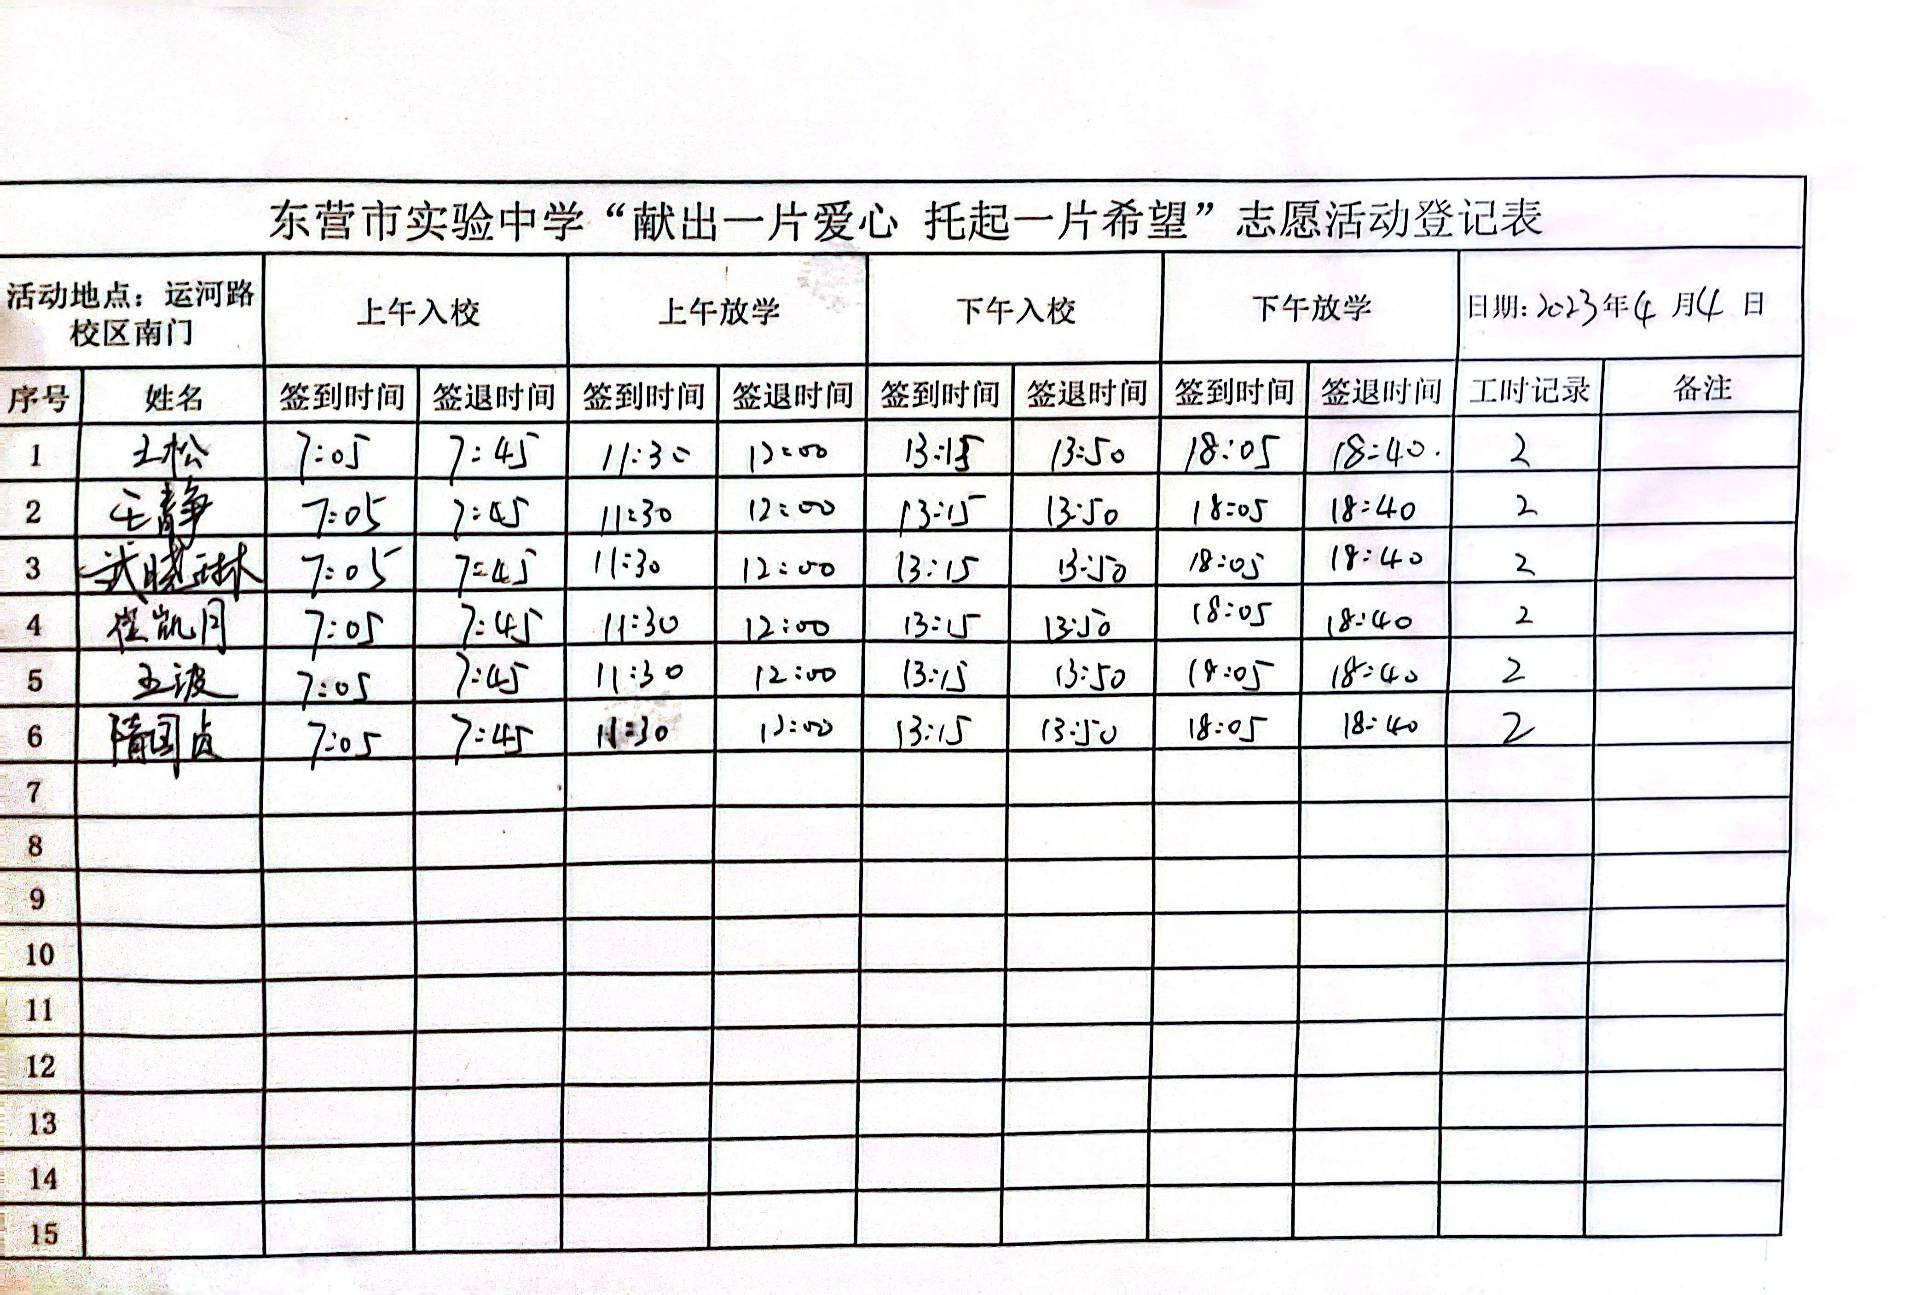 东营市实验中学“献出一片爱心 托起一片希望”志愿活动登记表
活动地点：运河路校区南门 上午入校 上午放学 下午入校 下午放学 日期：2023年4月4日
序号 姓名 签到时间 签退时间 签到时间 签退时间 签到时间 签退时间 签到时间 签退时间 工时记录 备注
1 王松 7:05 7:45 11:30 12:00 13:15 13:50 18:05 18:40. 2
2 王静 7:05 7:45 11:30 12:00 13:15 13:50 18:05 18:40 2
3 武晓琳 7:05 7:45 11:30 12:00 13:15 13:50 18:05 18:40 2
4 崔凯月 7:05 7:45 11:30 12:00 13:15 13:50 18:05 18:40 2
5 王波 7:05 7:45 11:30 12:00 13:15 13:50 18:05 18:40 2
6 隋国贞 7:05 7:45 11:30 12:00 13:15 13:50 18:05 18:40 2
7
8
9
10
11
12
13
14
15